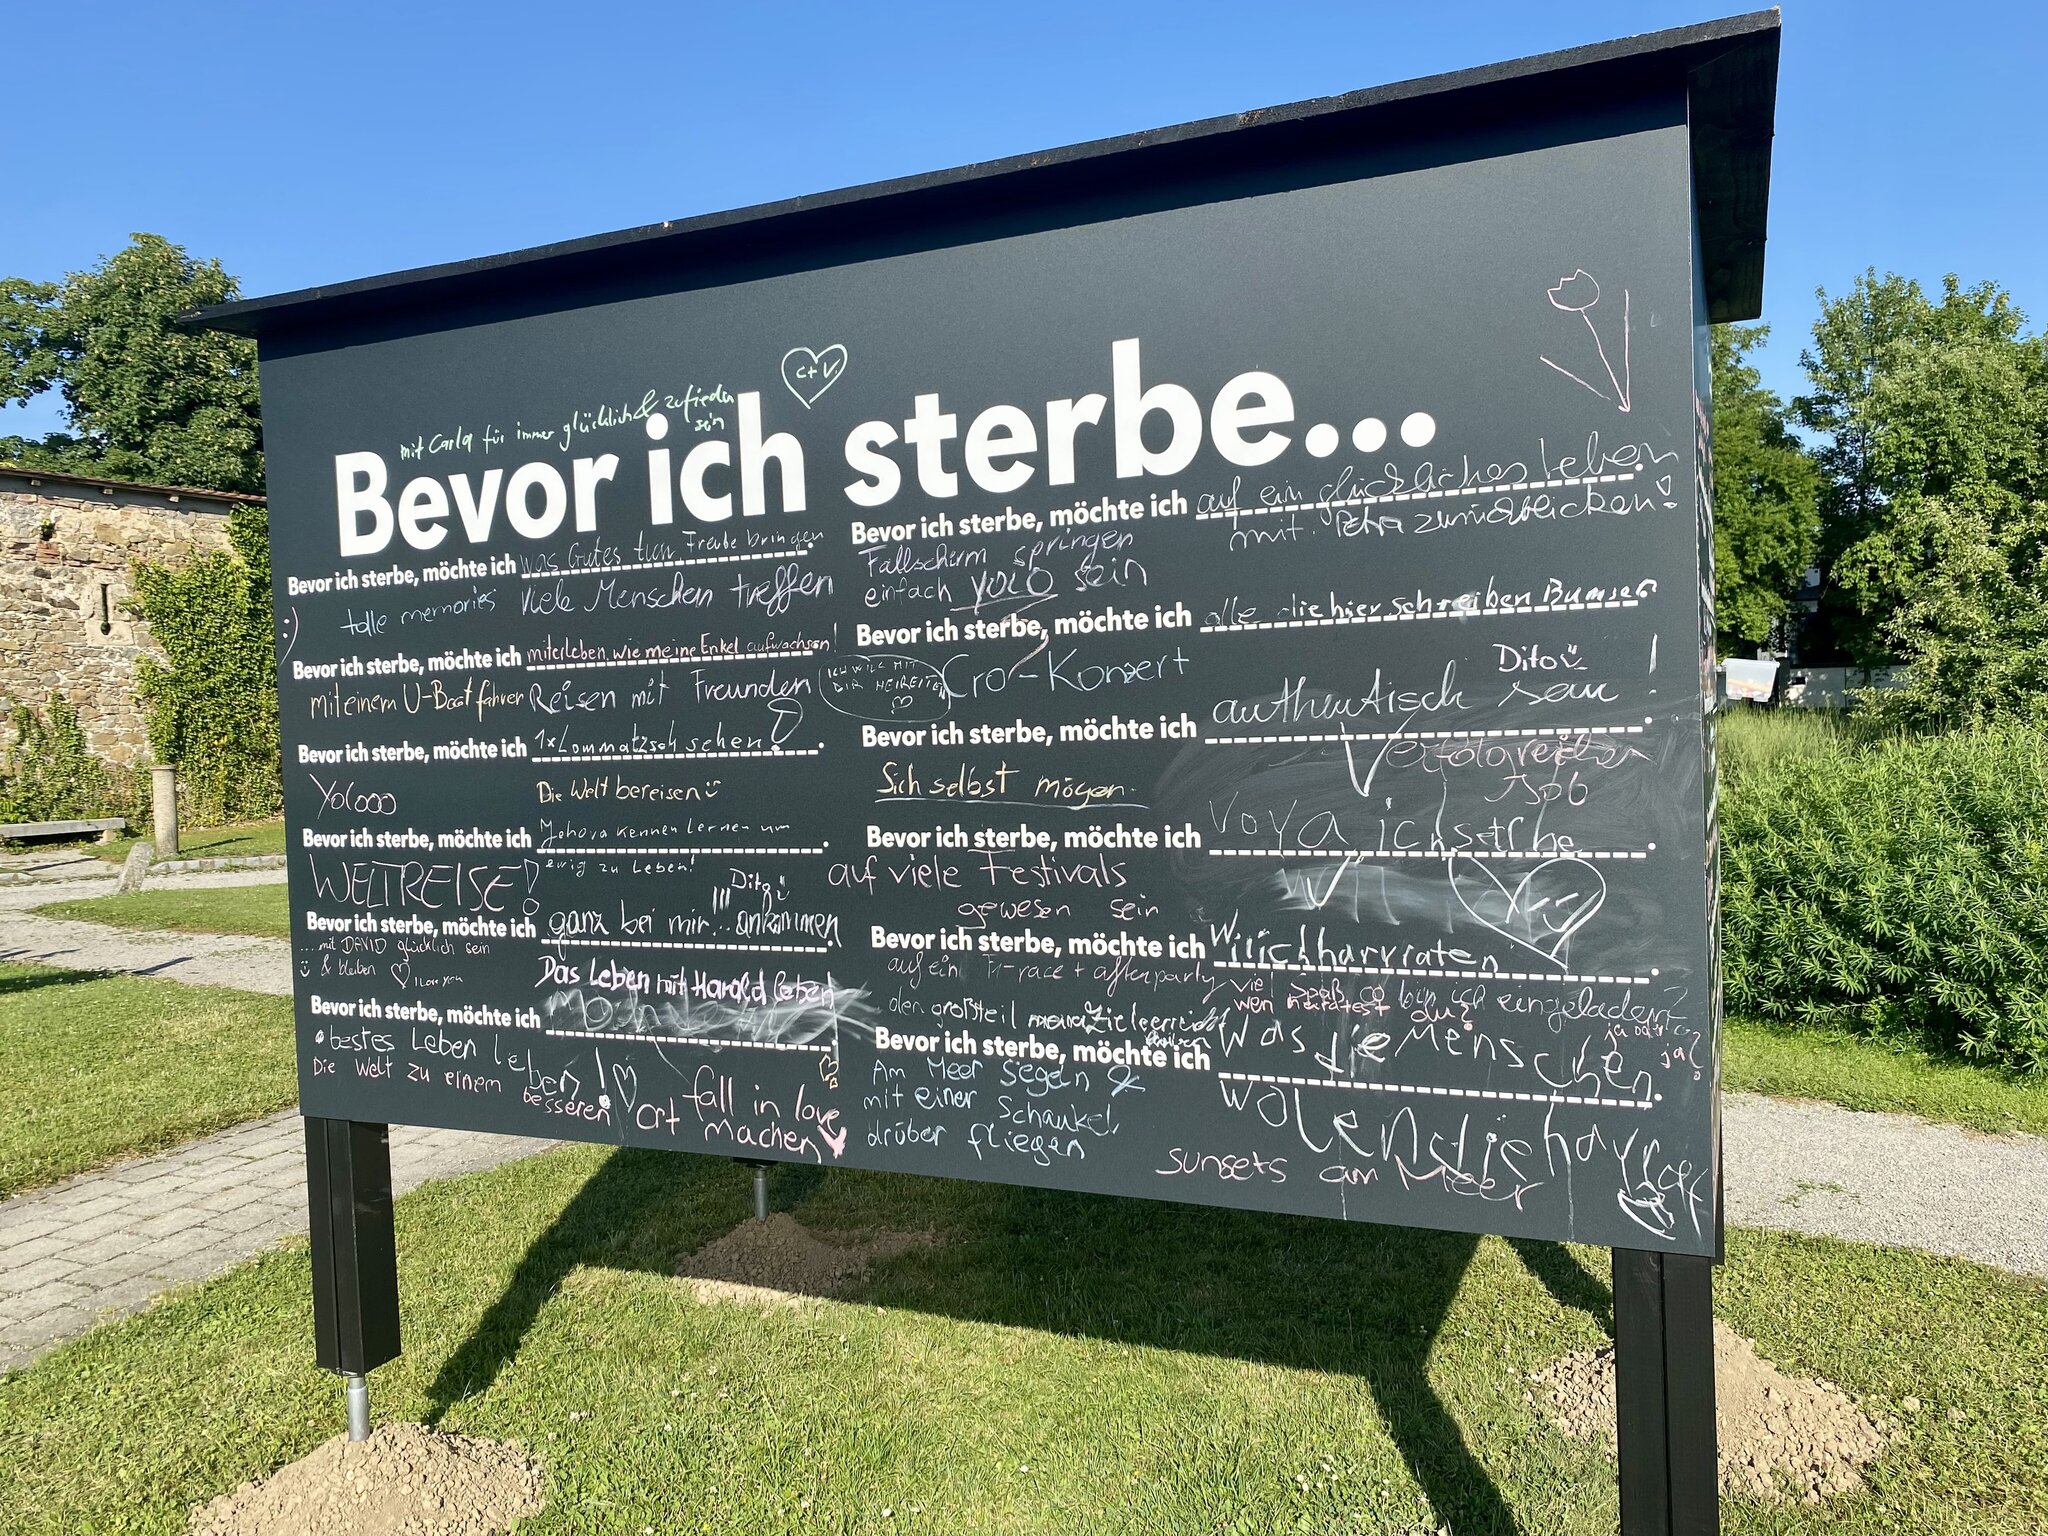 C+V.
mit Carla für immer glücklich & zufrieden
sein
Bevor ich sterbe...
Bevor ich sterbe, möchte ich was Gutes tun, Freude bringen.
tolle memories viele Menschen treffen
:)
Bevor ich sterbe, möchte ich miterleben, wie meine Enkel aufwachsen!
mit einem U-Boot fahren Reisen mit Freunden
Bevor ich sterbe, möchte ich 1x Lommatzsch sehen!
Yolooo Die Welt bereisen
Bevor ich sterbe, möchte ich Jehova kennen lernen um
ewig zu Leben!
WELTREISE!
Dito
Bevor ich sterbe, möchte ich ganz bei mir ankommen
... mit DAVID glücklich sein
& bleiben I love you
Das Leben mit Harold leben
Bevor ich sterbe, möchte ich
bestes Leben leben!
Die Welt zu einem besseren ORT machen
fall in love
Bevor ich sterbe, möchte ich auf ein glückliches Leben
mit Petra zurückblicken!
Fallschirm springen
einfach YOLO sein
Bevor ich sterbe, möchte ich alle die hier schreiben Bumsen
ICH WILL MIT
DIR HEIREITEN
Cro-Konzert
Dito
authentisch sein!
Bevor ich sterbe, möchte ich
Verfolgreichen
Job
Sich selbst mögen.
Bevor ich sterbe, möchte ich
auf viele Festivals
gewesen sein
Bevor ich sterbe, möchte ich Wilichharraten
auf ein F1-race + afterparty viel Spaß bin ich eingeladen?
wen heiratest du?
den großteil meiner Ziele erreicht
haben
ja oder
ja?
Bevor ich sterbe, möchte ich Was die Menschen
Am Meer segeln &
mit einer Schaukel
drüber fliegen
sunsets am Meer